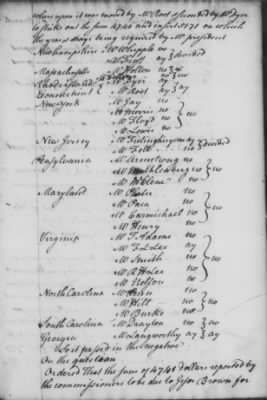 where upon it was moved by Mr Root seconded by Mr Dyer
to strike out the sum 4741 and insert 3175 on which
the yeas & nays being required by Mr president
New hampshire Mr Whipple no } divided
Mr Frost ay
Massachusetts Mr Holton no
Rhode island Mr no
Connecticut Mr Dyer ay } ay
Mr Root ay
New York Mr Jay no } no
Mr Morris no
Mr Floyd no
Mr Lewis no
New Jersey Mr Frelinghuysen ay } divided
Mr Fell no
Pensylvania Mr Armstrong no } no
Mr Muhlenberg no
Mr McClene no
Maryland Mr no } no
Mr Paca no
Mr Carmichael no
Mr Henry no
Virginia Mr T. Adams no } no
Mr F L Lee ay
Mr Smith no
Mr R H Lee no
Mr Nelson no
North Carolina Mr Penn no } no
Mr Hill no
Mr Burke no
South Carolina Mr Drayton no } no
Georgia Mr Langworthy ay } ay
So it passed in the Negative
On the question
Ordered That the sum of 4741 dollars reported by
the commissioners to be due to Brown for